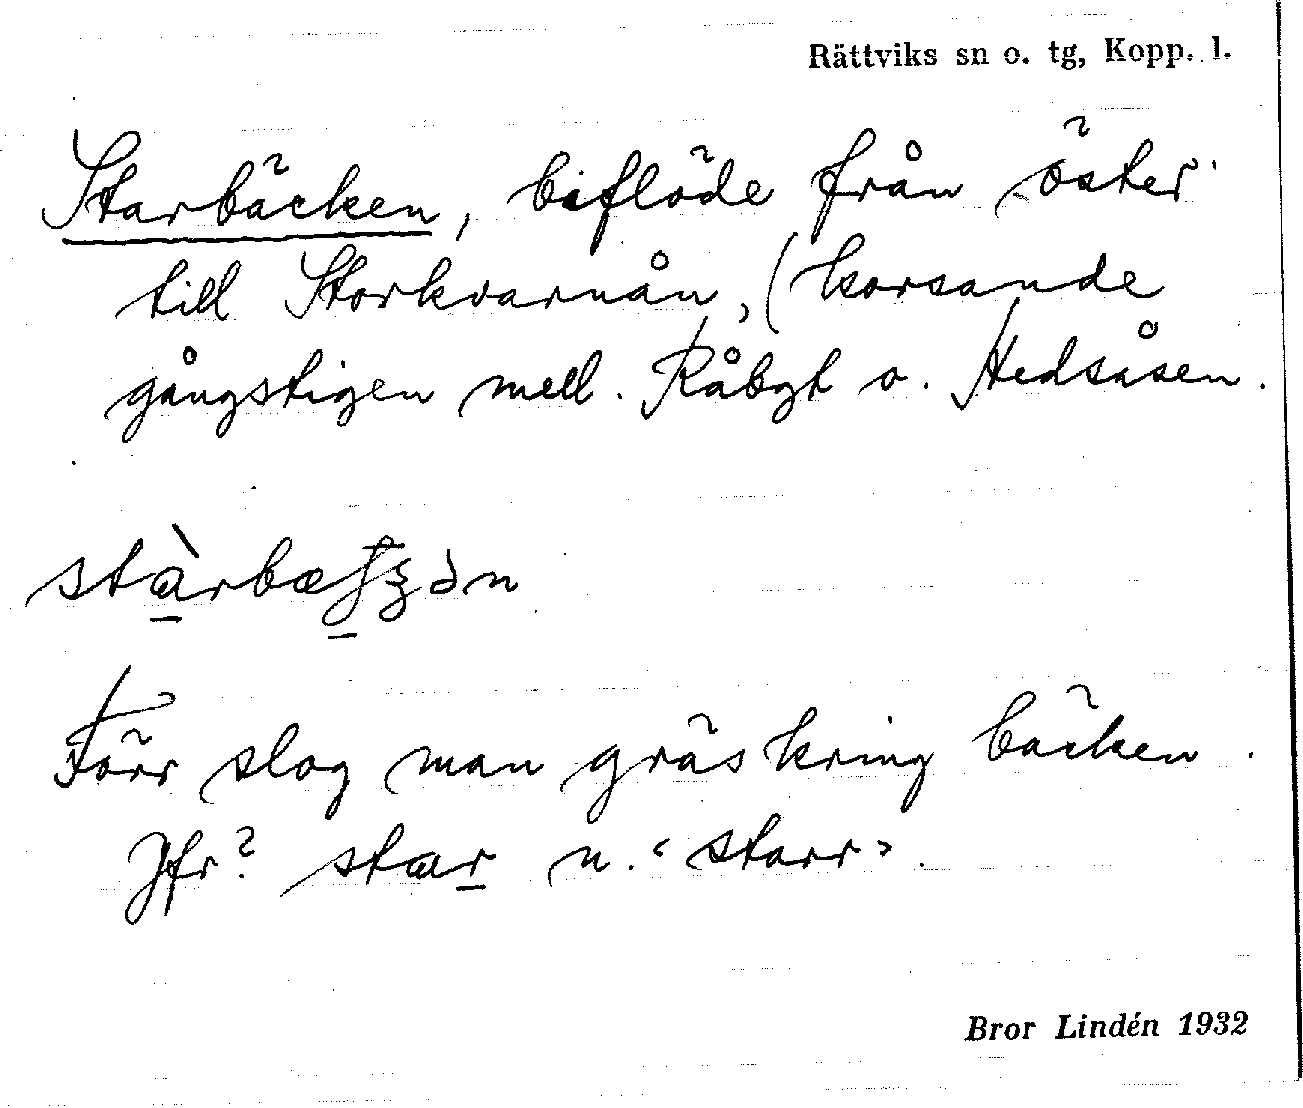 Rättviks sn o. tg, Kopp. l.
Starbäcken, biflöde från öster
till Storkvarnån, (korsande
gångstigen mell. Råbgt o. Hedsåsen.
Förr slog man gräs kring bäcken.
Jfr? star n. "starr".
Bror Lindén 1932